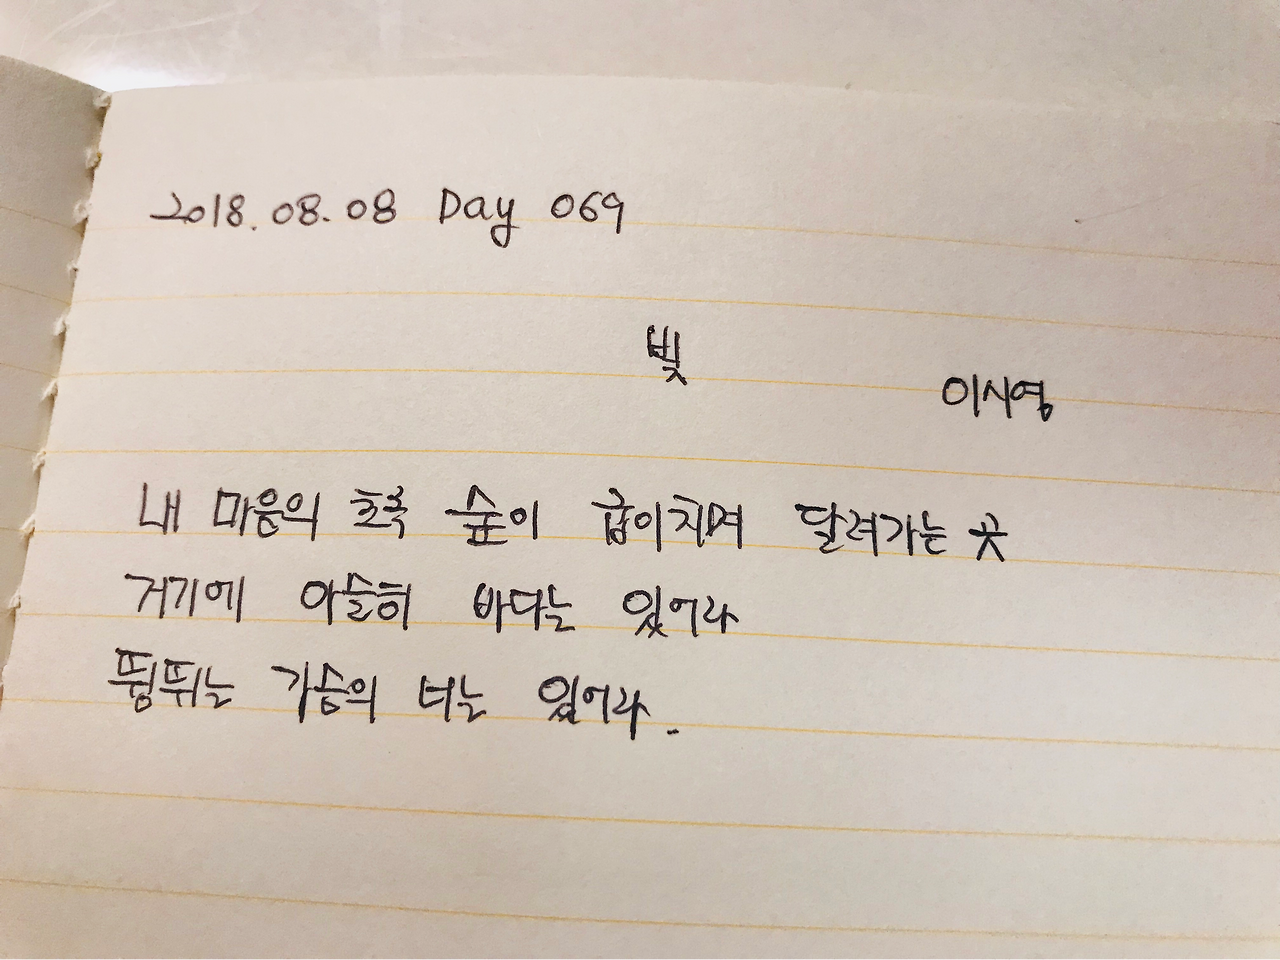 2018.08.08 Day 069
빛
이시영
내 마음의 초록 숲이 굽이치며 달려가는 곳
거기에 아슬히 바다는 있어라
뜀뛰는 가슴의 너는 있어라.